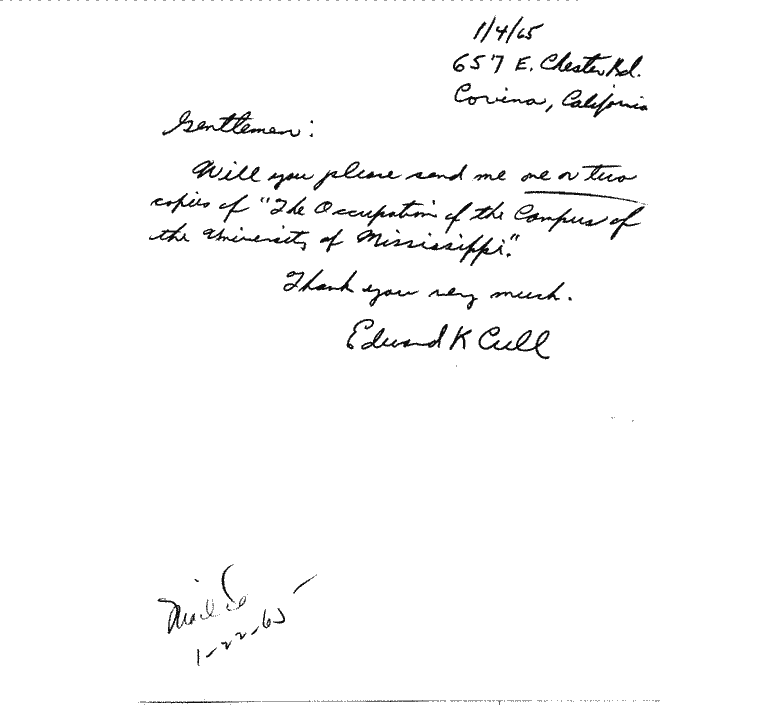 1/4/65
657 E. Chester Rd.
Covina, California
Gentlemen:
Will you please send me one or two
copies of "The Occupation of the Campus of
the University of Mississippi".
Thank you very much.
Edward K Cull
Mailed
1-22-65